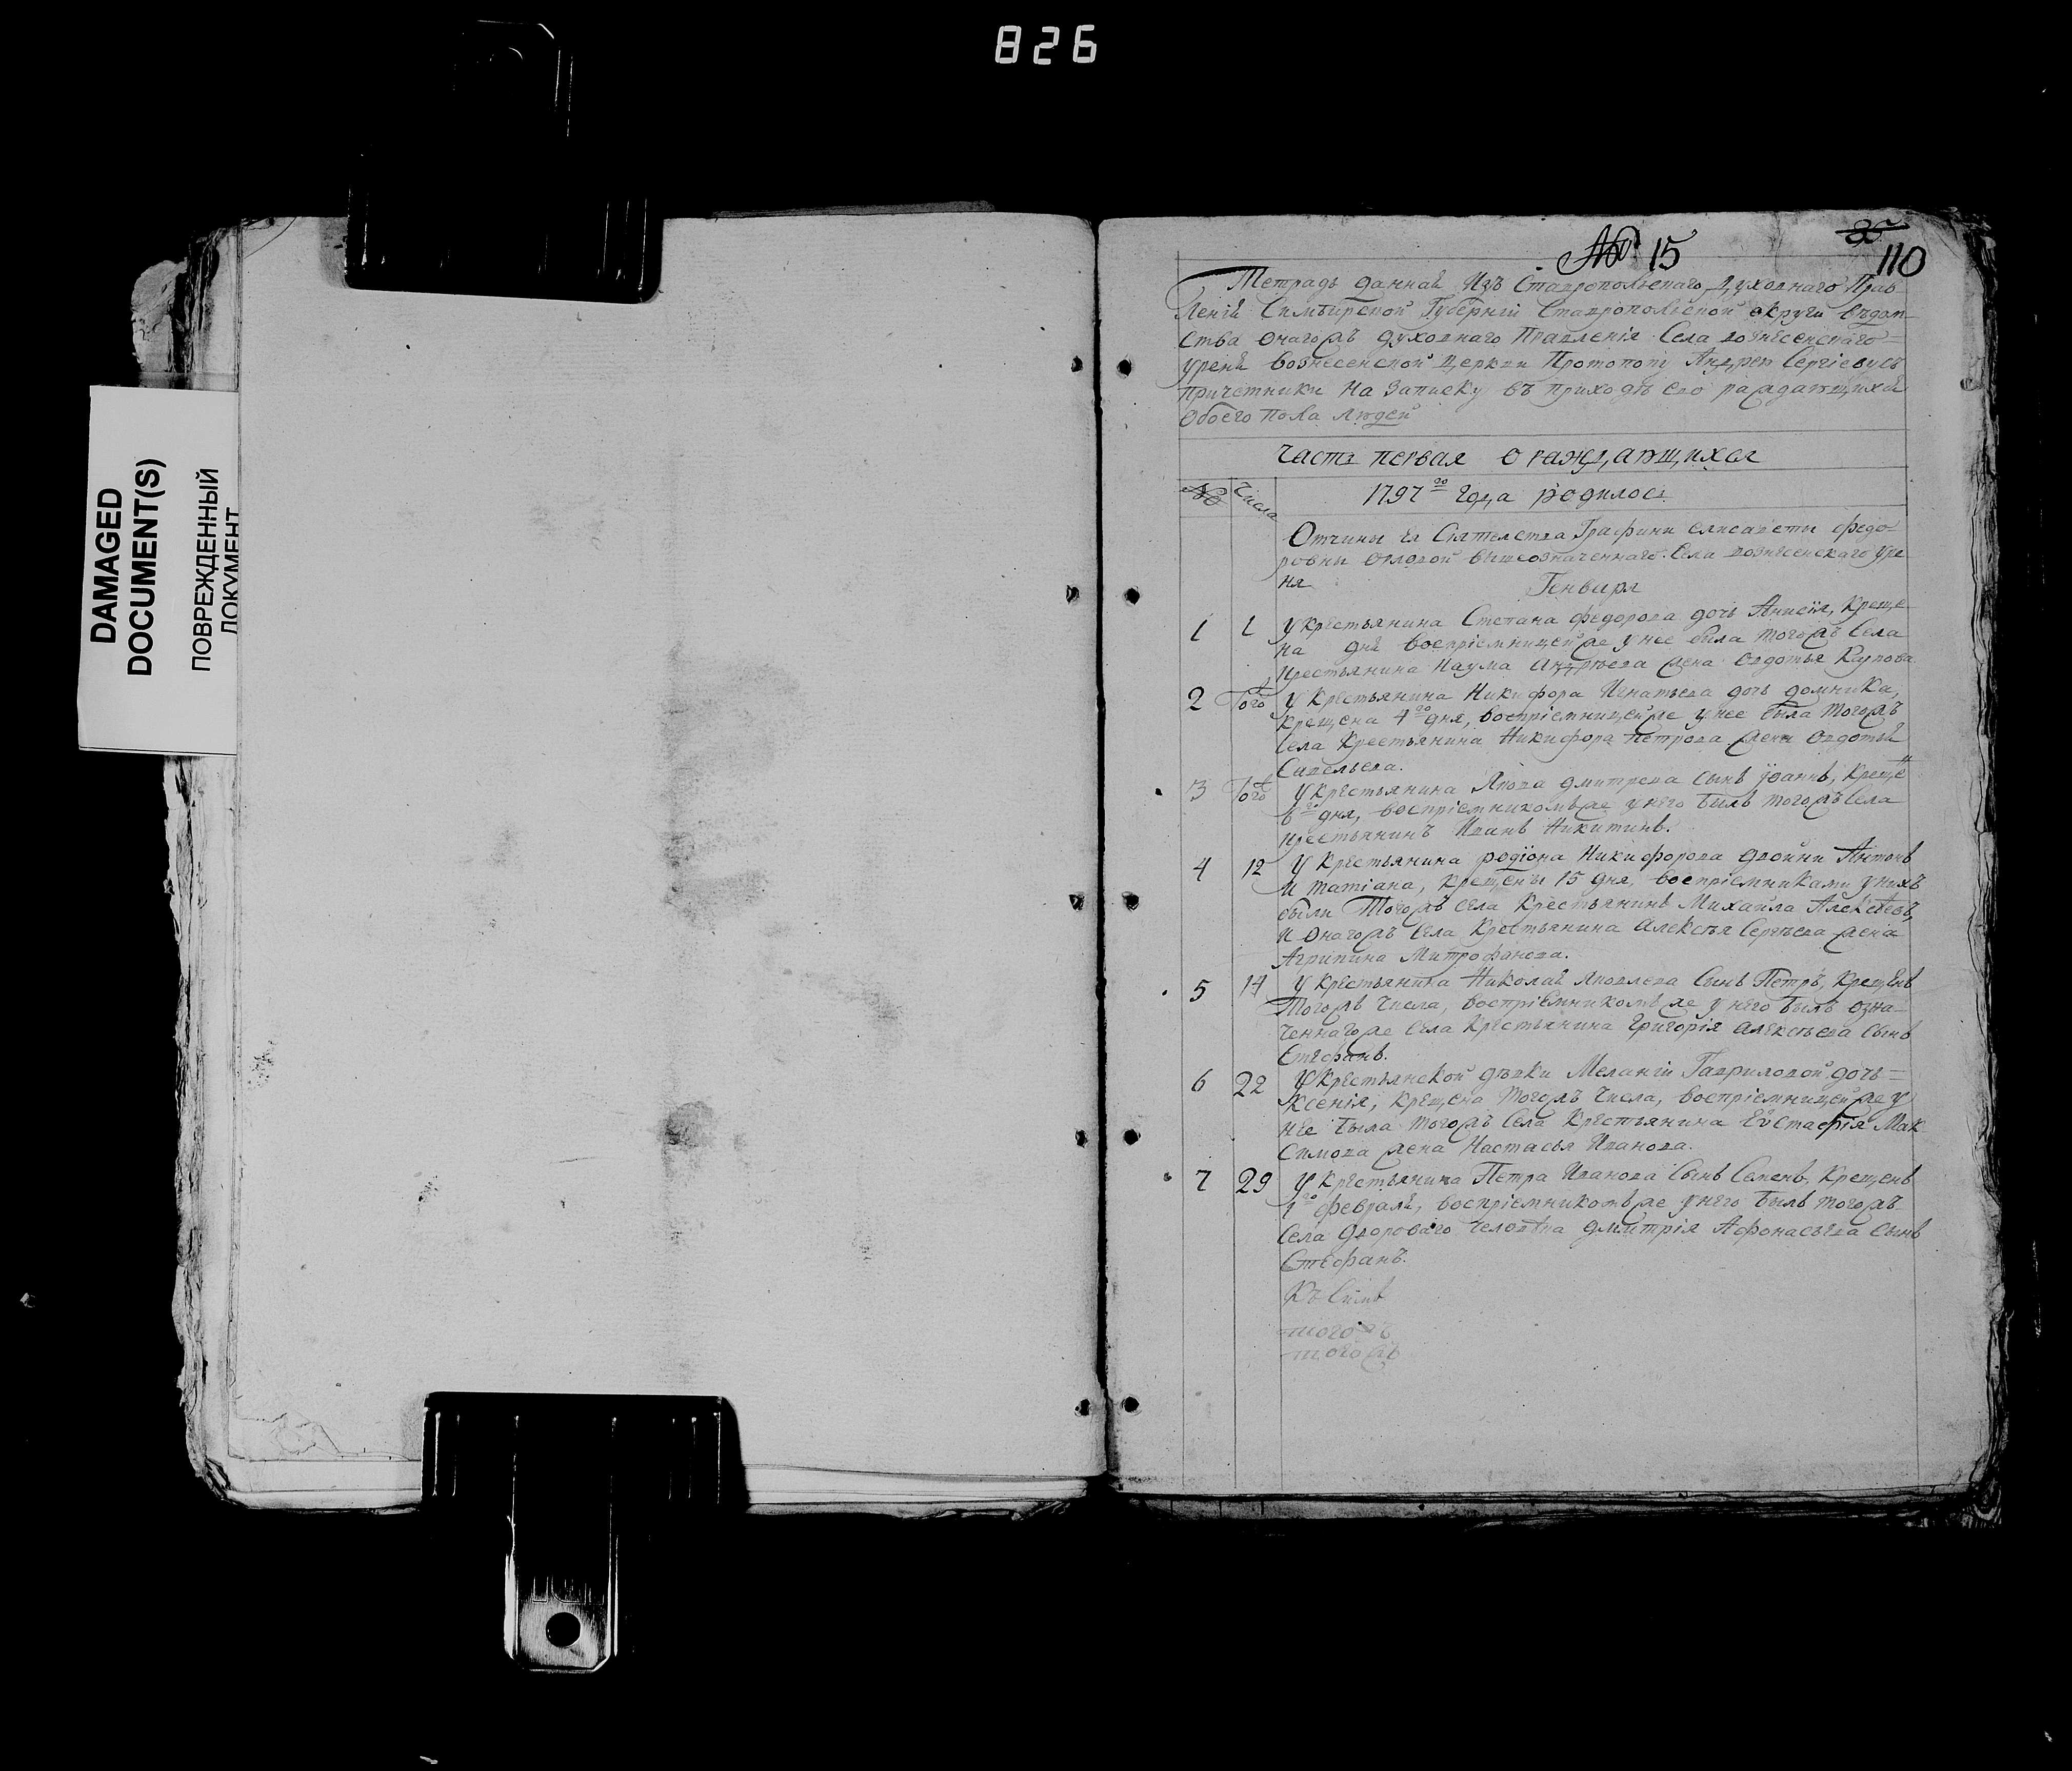 826
DAMAGED
DOCUMENT(S)
ПОВРЕЖДЕННЫЙ
ДОКУМЕНТ
№ 15
110
Тетрадь данная Изъ Ставропольскаго духовнаго Прав
ленія Симбирской Губерніи Ставропольской округи вѣдом
ства онагожъ духовнаго Правленія Села вознесенскаго
уреня вознесенской церкви Протопопу Андрею Сергіеву съ
причетники на записку въ приходѣ его раждающихся
обоего пола людей
часть первая о раждающихся
№ Числа 1797го года родилось
Отчины Ея Сіятелства Графини елисаветы федо
ровны орловой вышеозначеннаго Села вознесенскаго уре
ня
Генваря
1 1 у крестьянина Степана федорова дочь Анисія, креще
на дня воспріемницейже у нее была тогожъ Села
крестьянина Наума Андрѣева жена овдотья Карпова
2 Того у крестьянина Никифора Игнатьева дочь домника,
крещена 4го дня, воспріемницейже у нее была тогожъ
села крестьянина Никифора петрова жена овдотья
Савельева.
3 Того у крестьянина Якова дмитрева сынъ Іоаннъ, креще
6го дня, воспріемникомъже у него былъ тогожъ села
крестьянинъ Иванъ Никитинъ.
4 12 у крестьянина родіона Никифорова двойни Антонъ
и татіана, крещены 15 дня, воспріемниками у нихъ
были Тогожъ села крестьянинъ Михайла Алексѣевъ,
и онагожъ села крестьянина алексѣя Сергѣева жена
Агрипина Митрофанова.
5 14 у крестьянина Николая яковлева сынъ Петръ, крещенъ
Тогожъ числа, воспріемникомъже у него былъ озна
ченнагоже села крестьянина григорія алексѣева сынъ
Стефанъ.
6 22 у крестьянской дѣвки Меланіи Гавриловой дочь
Ксенія, крещена тогожъ числа, воспріемницейже у
нее была тогожъ села крестьянина Еvстафія Мак
симова жена Настасья Иванова.
7 29 у крестьянина Петра Иванова сынъ Семенъ, крещенъ
1го февраля, воспріемникомъже у него былъ тогожъ
села двороваго человѣка дмитрія Афонасьева сынъ
Стефанъ.
тогожъ
тогожъ